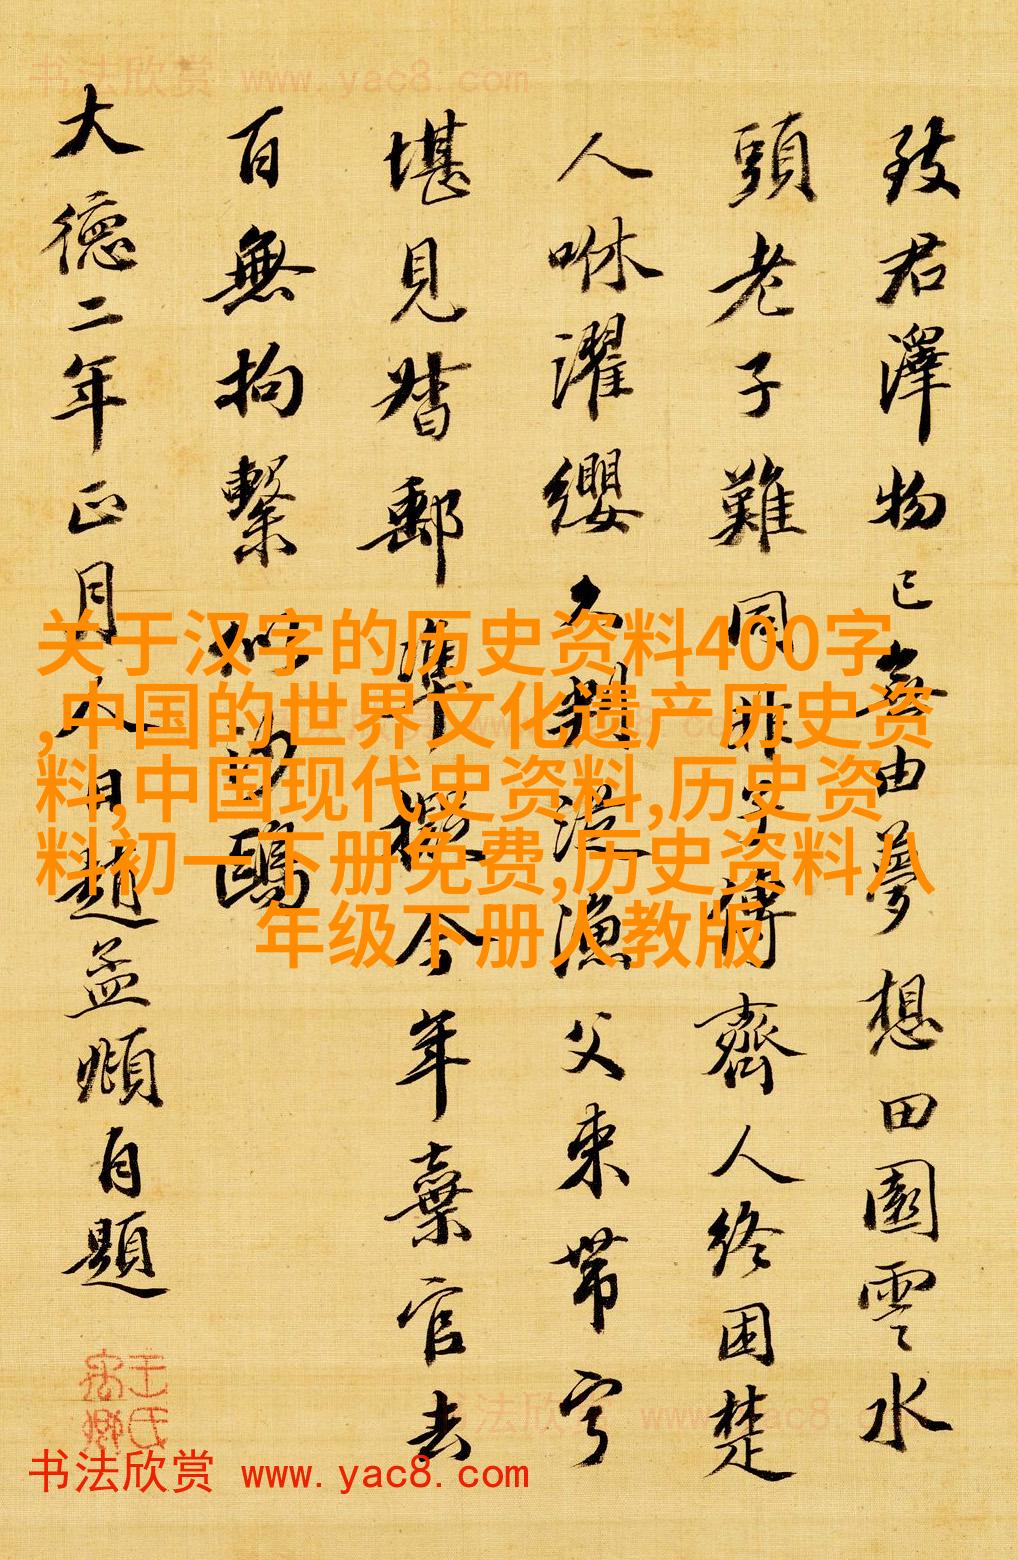 書法欣赏 www.yac8.com
致君澤物已無由夢想田園雲水
頭老子難同非子傳齊人終困楚
人咻濯纓久判從漁父束帶寧
堪見督郵準擬今年棄官去
百無拘繫似沙鷗
大德二年正月人日趙孟頫自題
关于汉字的历史资料400字
,中国的世界文化遗产历史资
料,中国现代史资料,历史资
料初一下册免费,历史资料八
年级下册人教版
书法欣赏 www.yac8.com